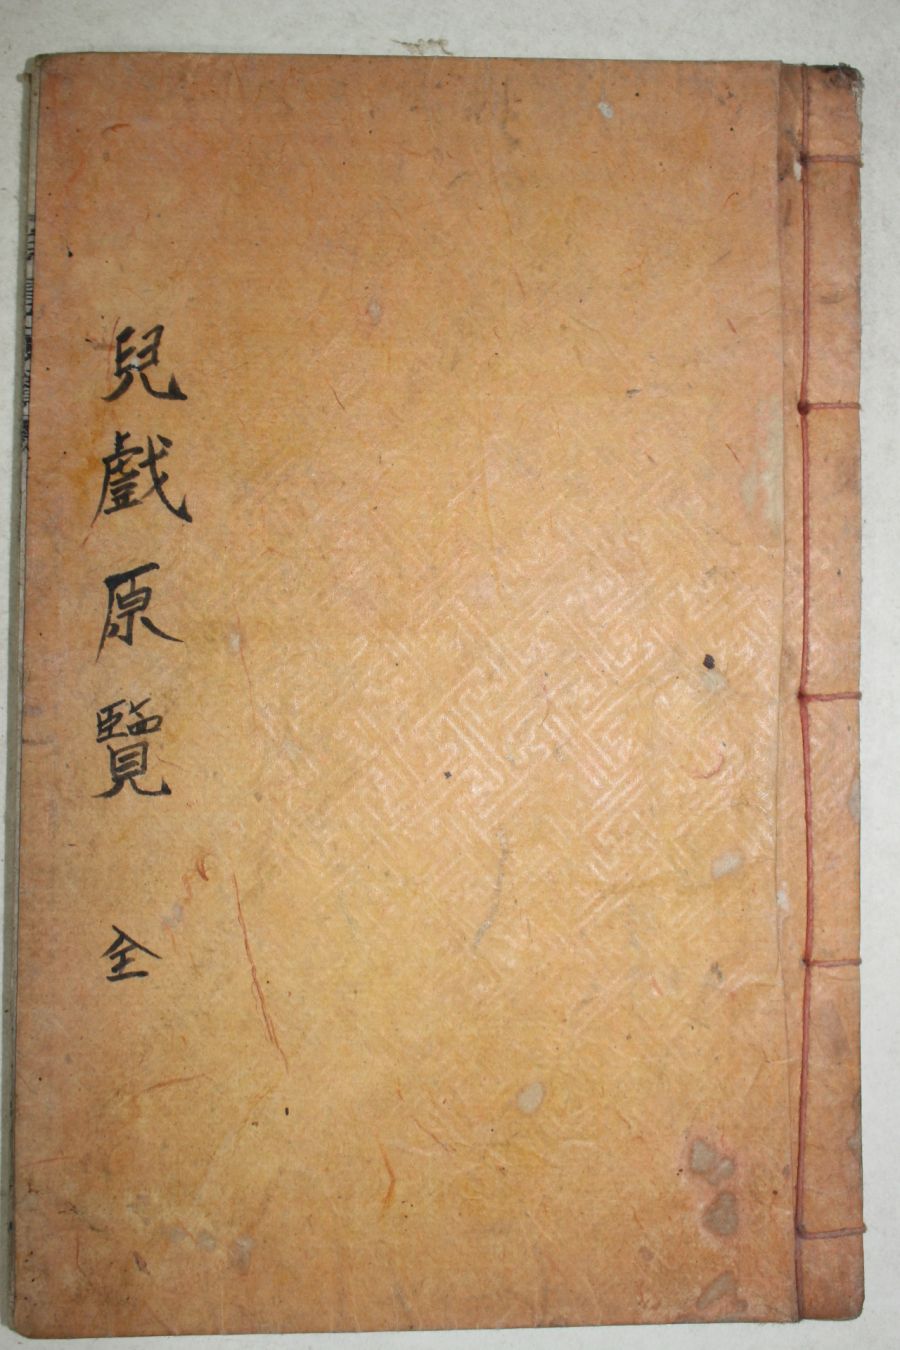 兒戲原覽 全